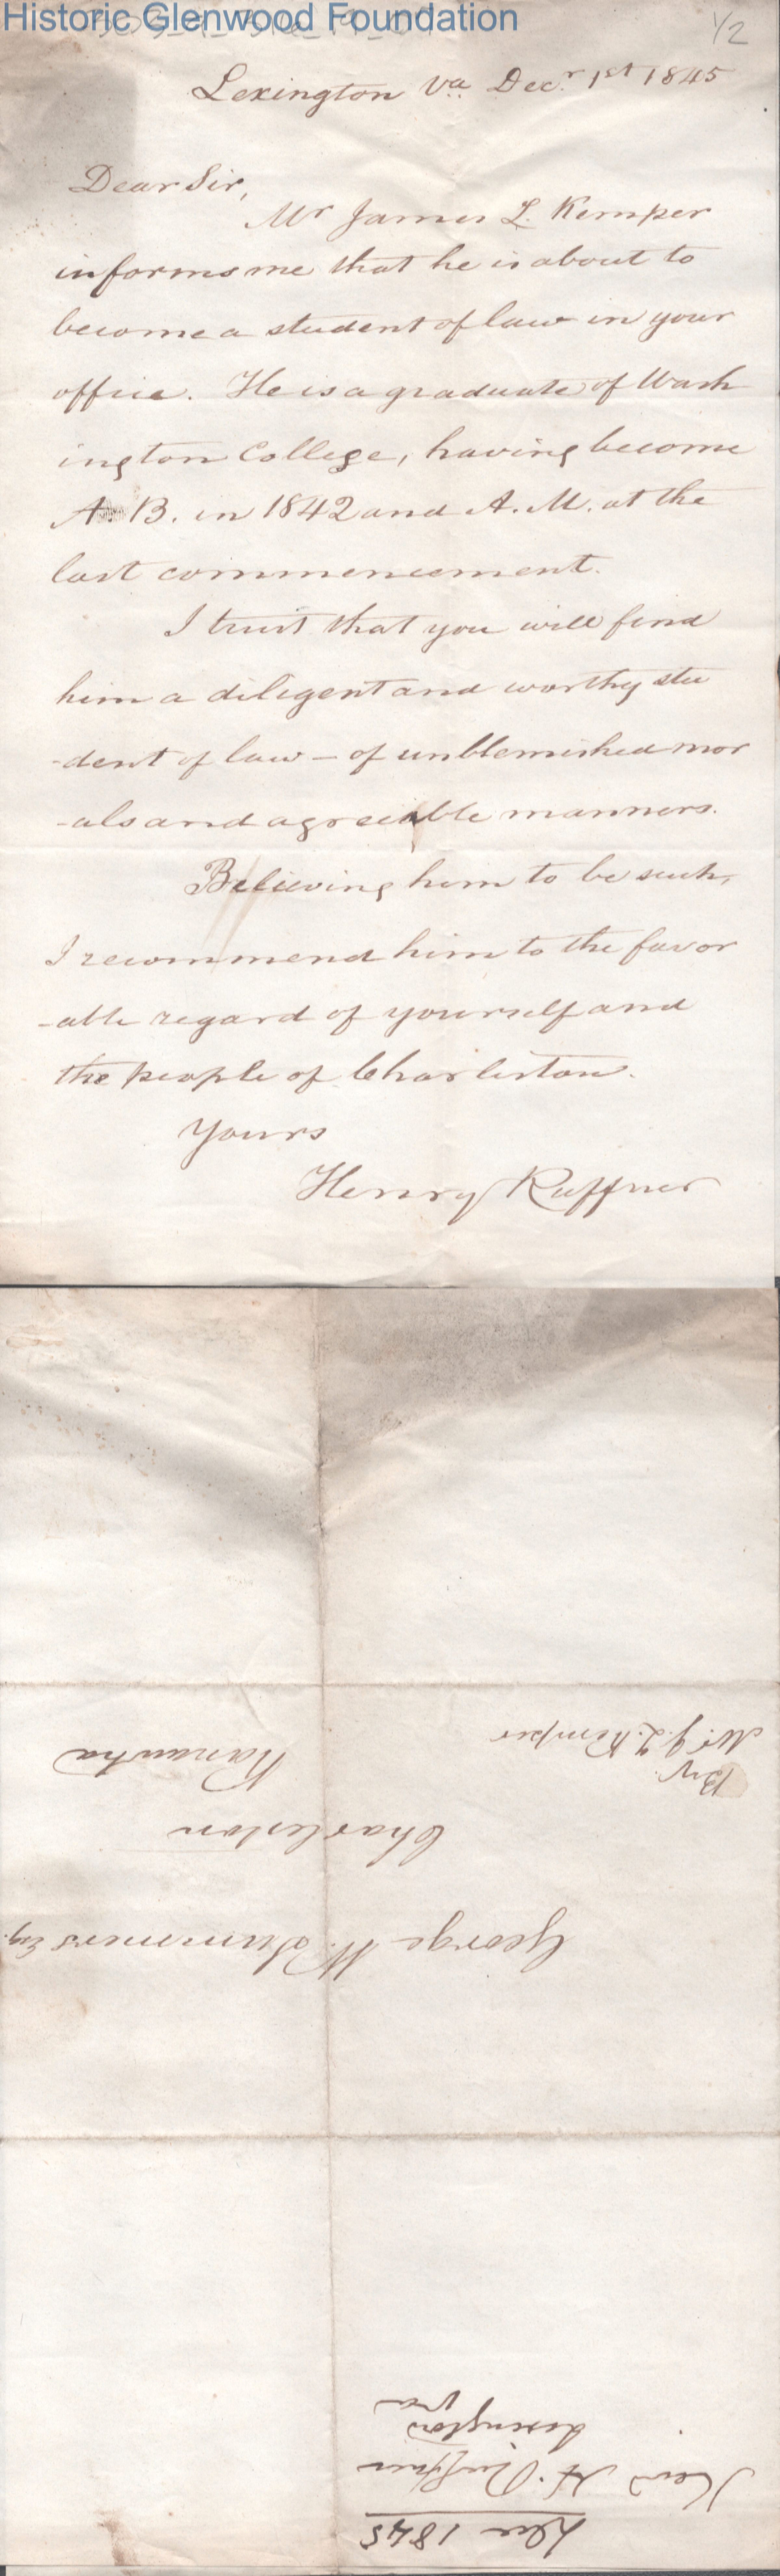 Historic Glenwood Foundation
1/2
Lexington Va. Decr. 1st 1845
Dear Sir,
Mr James L. Kemper
informs me that he is about to
become a student of law in your
office. He is a graduate of Wash
ington College, having become
A. B. in 1842 and A. M. at the
last commencement.
I trust that you will find
him a diligent and worthy stu
-dent of law – of unblemished mor
-als and agreeable manners.
Believing him to be such,
I recommend him to the favor
-able regard of yourself and
the people of Charleston.
Yours
Henry Ruffner
By
Mr. J. L. Kemper
George W. Summers Esq.
Charleston
Kanawha
Dec 1845
Rev H. Ruffner
Lexington
Va